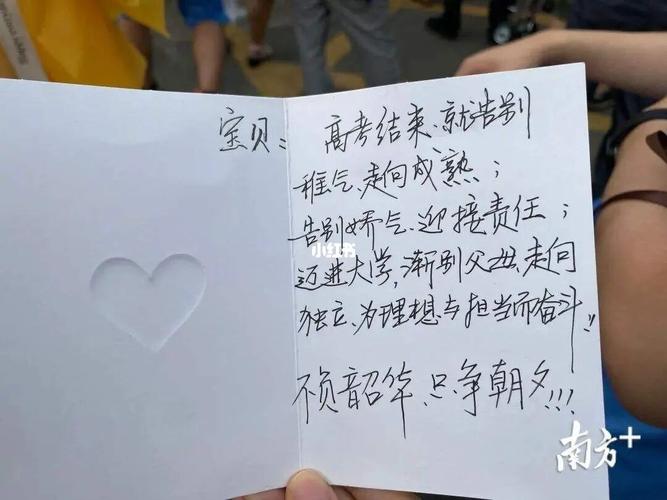 宝贝: 高考结束、就告别
稚气、走向成熟;
告别娇气、迎接责任;
迈进大学,渐别父母、走向
独立、为理想与担当而奋斗!!
不负韶华、只争朝夕!!!
小红书
南方+